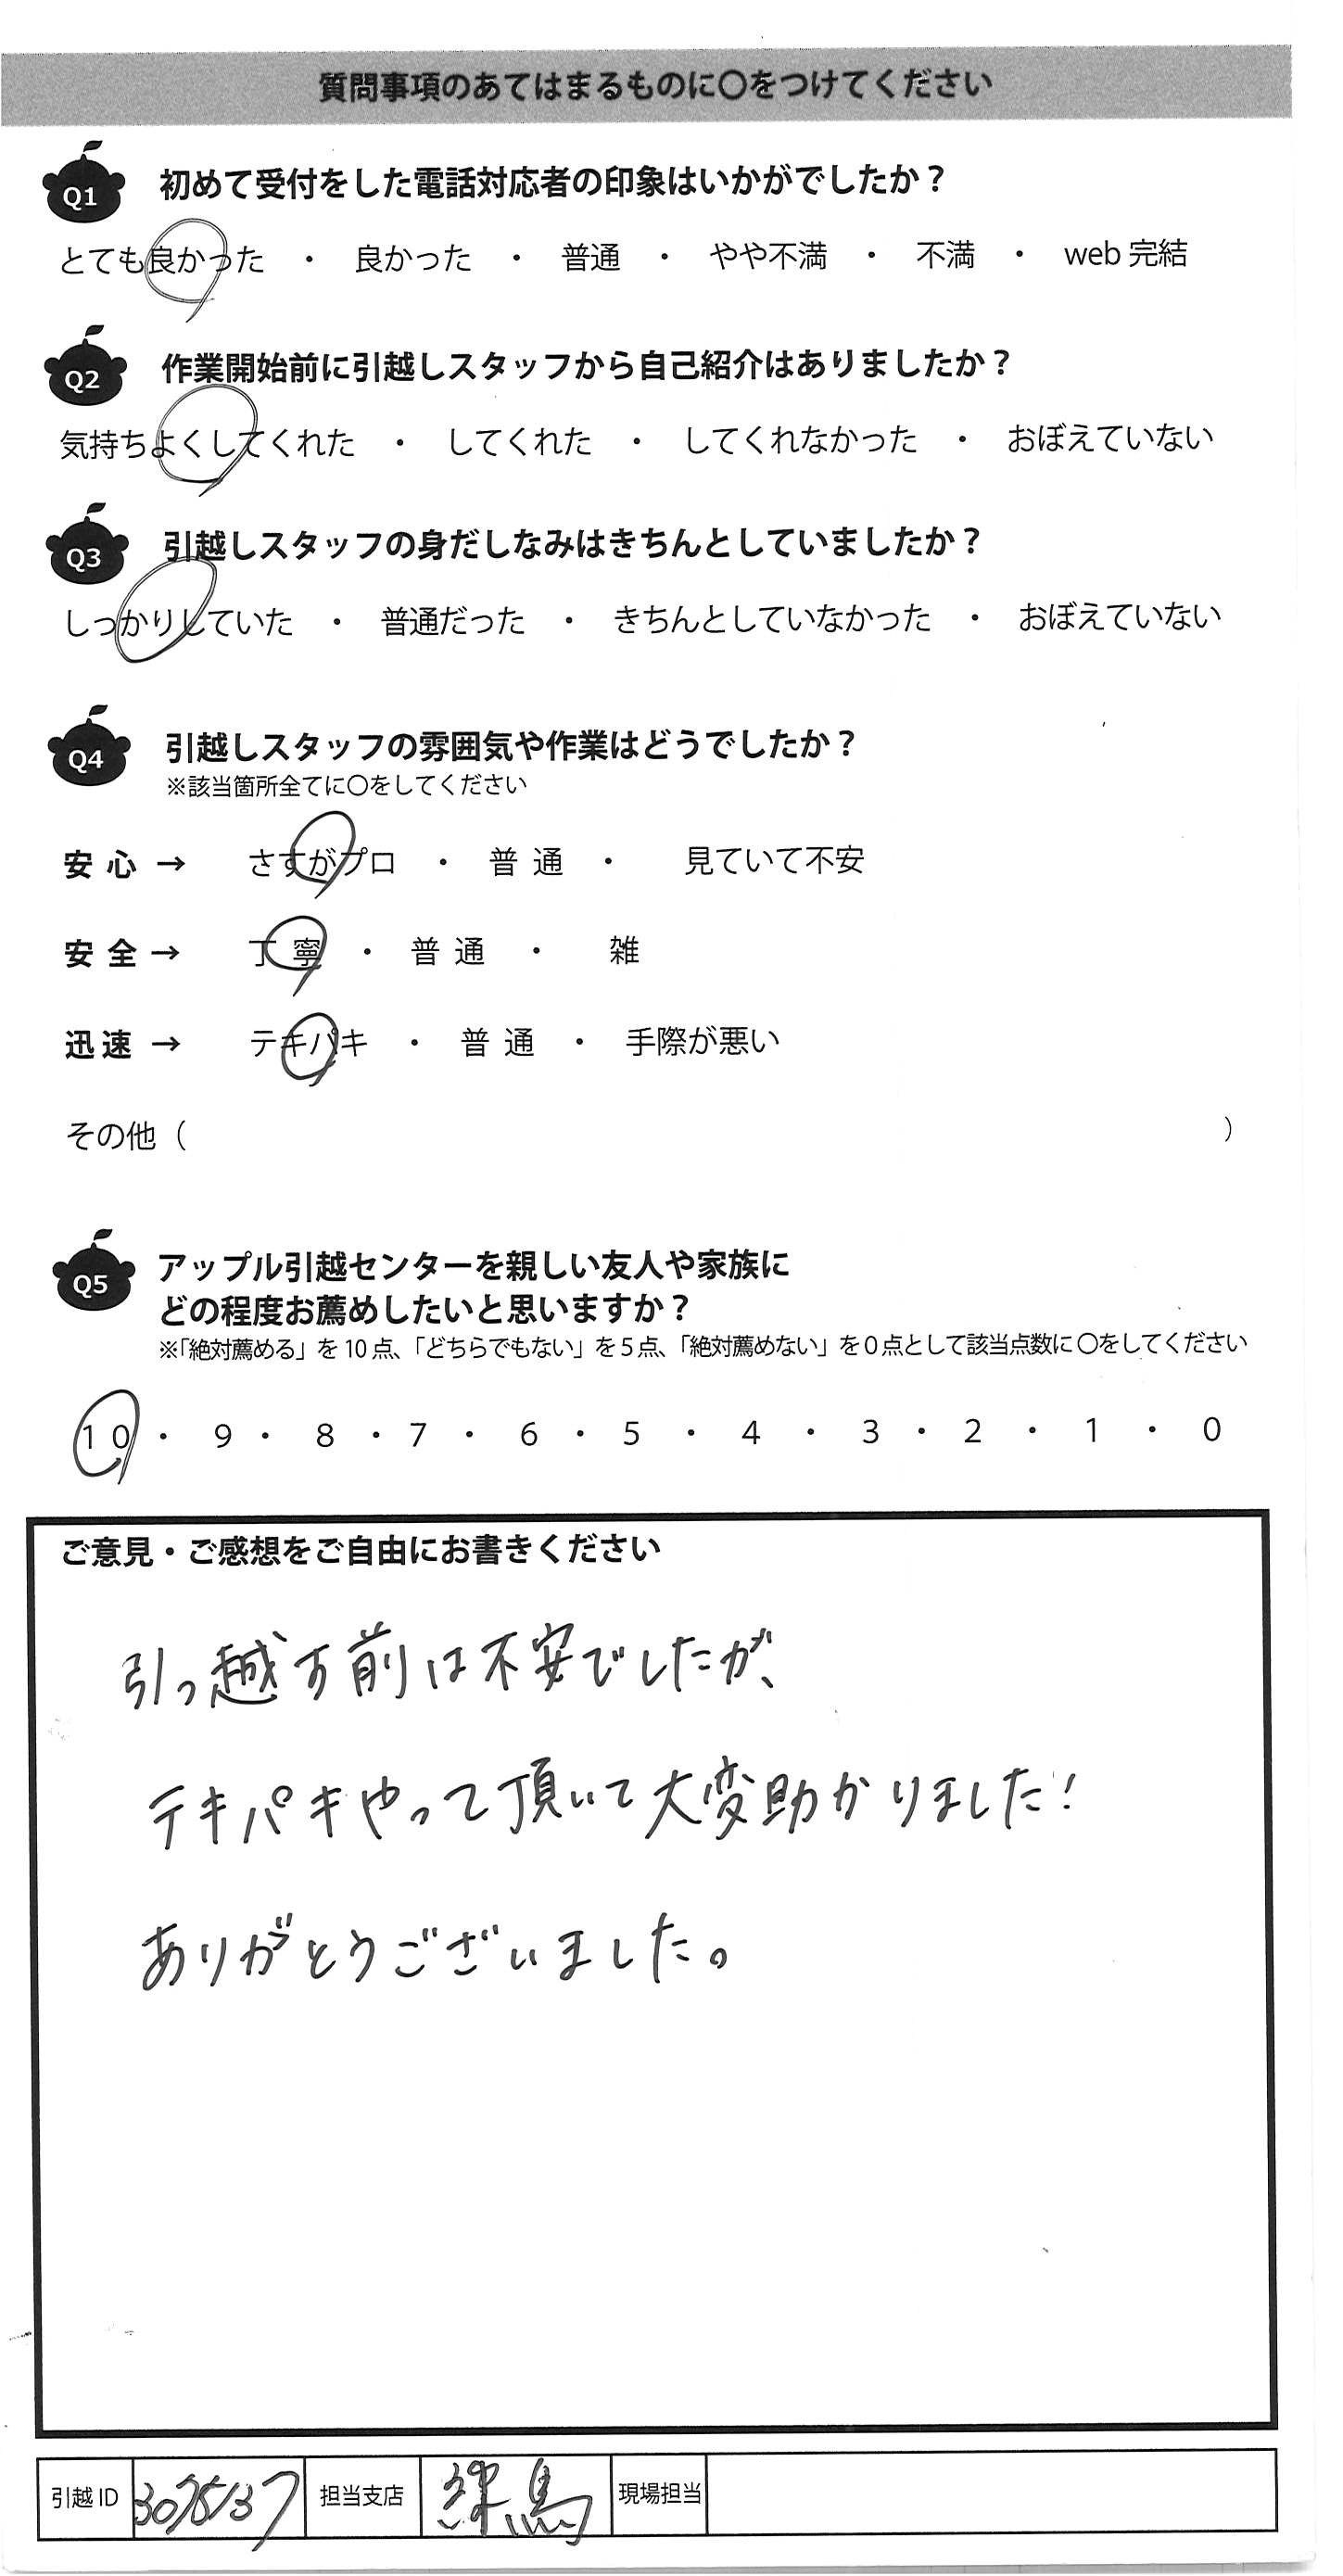 質問事項のあてはまるものに〇をつけてください
Q1 初めて受付をした電話対応者の印象はいかがでしたか？
とても良かった ・ 良かった ・ 普通 ・ やや不満 ・ 不満 ・ web 完結
Q2 作業開始前に引越しスタッフから自己紹介はありましたか？
気持ちよくしてくれた ・ してくれた ・ してくれなかった ・ おぼえていない
Q3 引越しスタッフの身だしなみはきちんとしていましたか？
しっかりしていた ・ 普通だった ・ きちんとしていなかった ・ おぼえていない
Q4 引越しスタッフの雰囲気や作業はどうでしたか？
※該当箇所全てに〇をしてください
安心 → さすがプロ ・ 普通 ・ 見ていて不安
安全 → 丁寧 ・ 普通 ・ 雑
迅速 → テキパキ ・ 普通 ・ 手際が悪い
その他（ ）
Q5 アップル引越センターを親しい友人や家族に
どの程度お薦めしたいと思いますか？
※「絶対薦める」を10点、「どちらでもない」を5点、「絶対薦めない」を0点として該当点数に〇をしてください
10 ・ 9 ・ 8 ・ 7 ・ 6 ・ 5 ・ 4 ・ 3 ・ 2 ・ 1 ・ 0
ご意見・ご感想をご自由にお書きください
引っ越す前は不安でしたが、
テキパキやって頂いて大変助かりました！
ありがとうございました。
引越ID 担当支店 練馬 現場担当